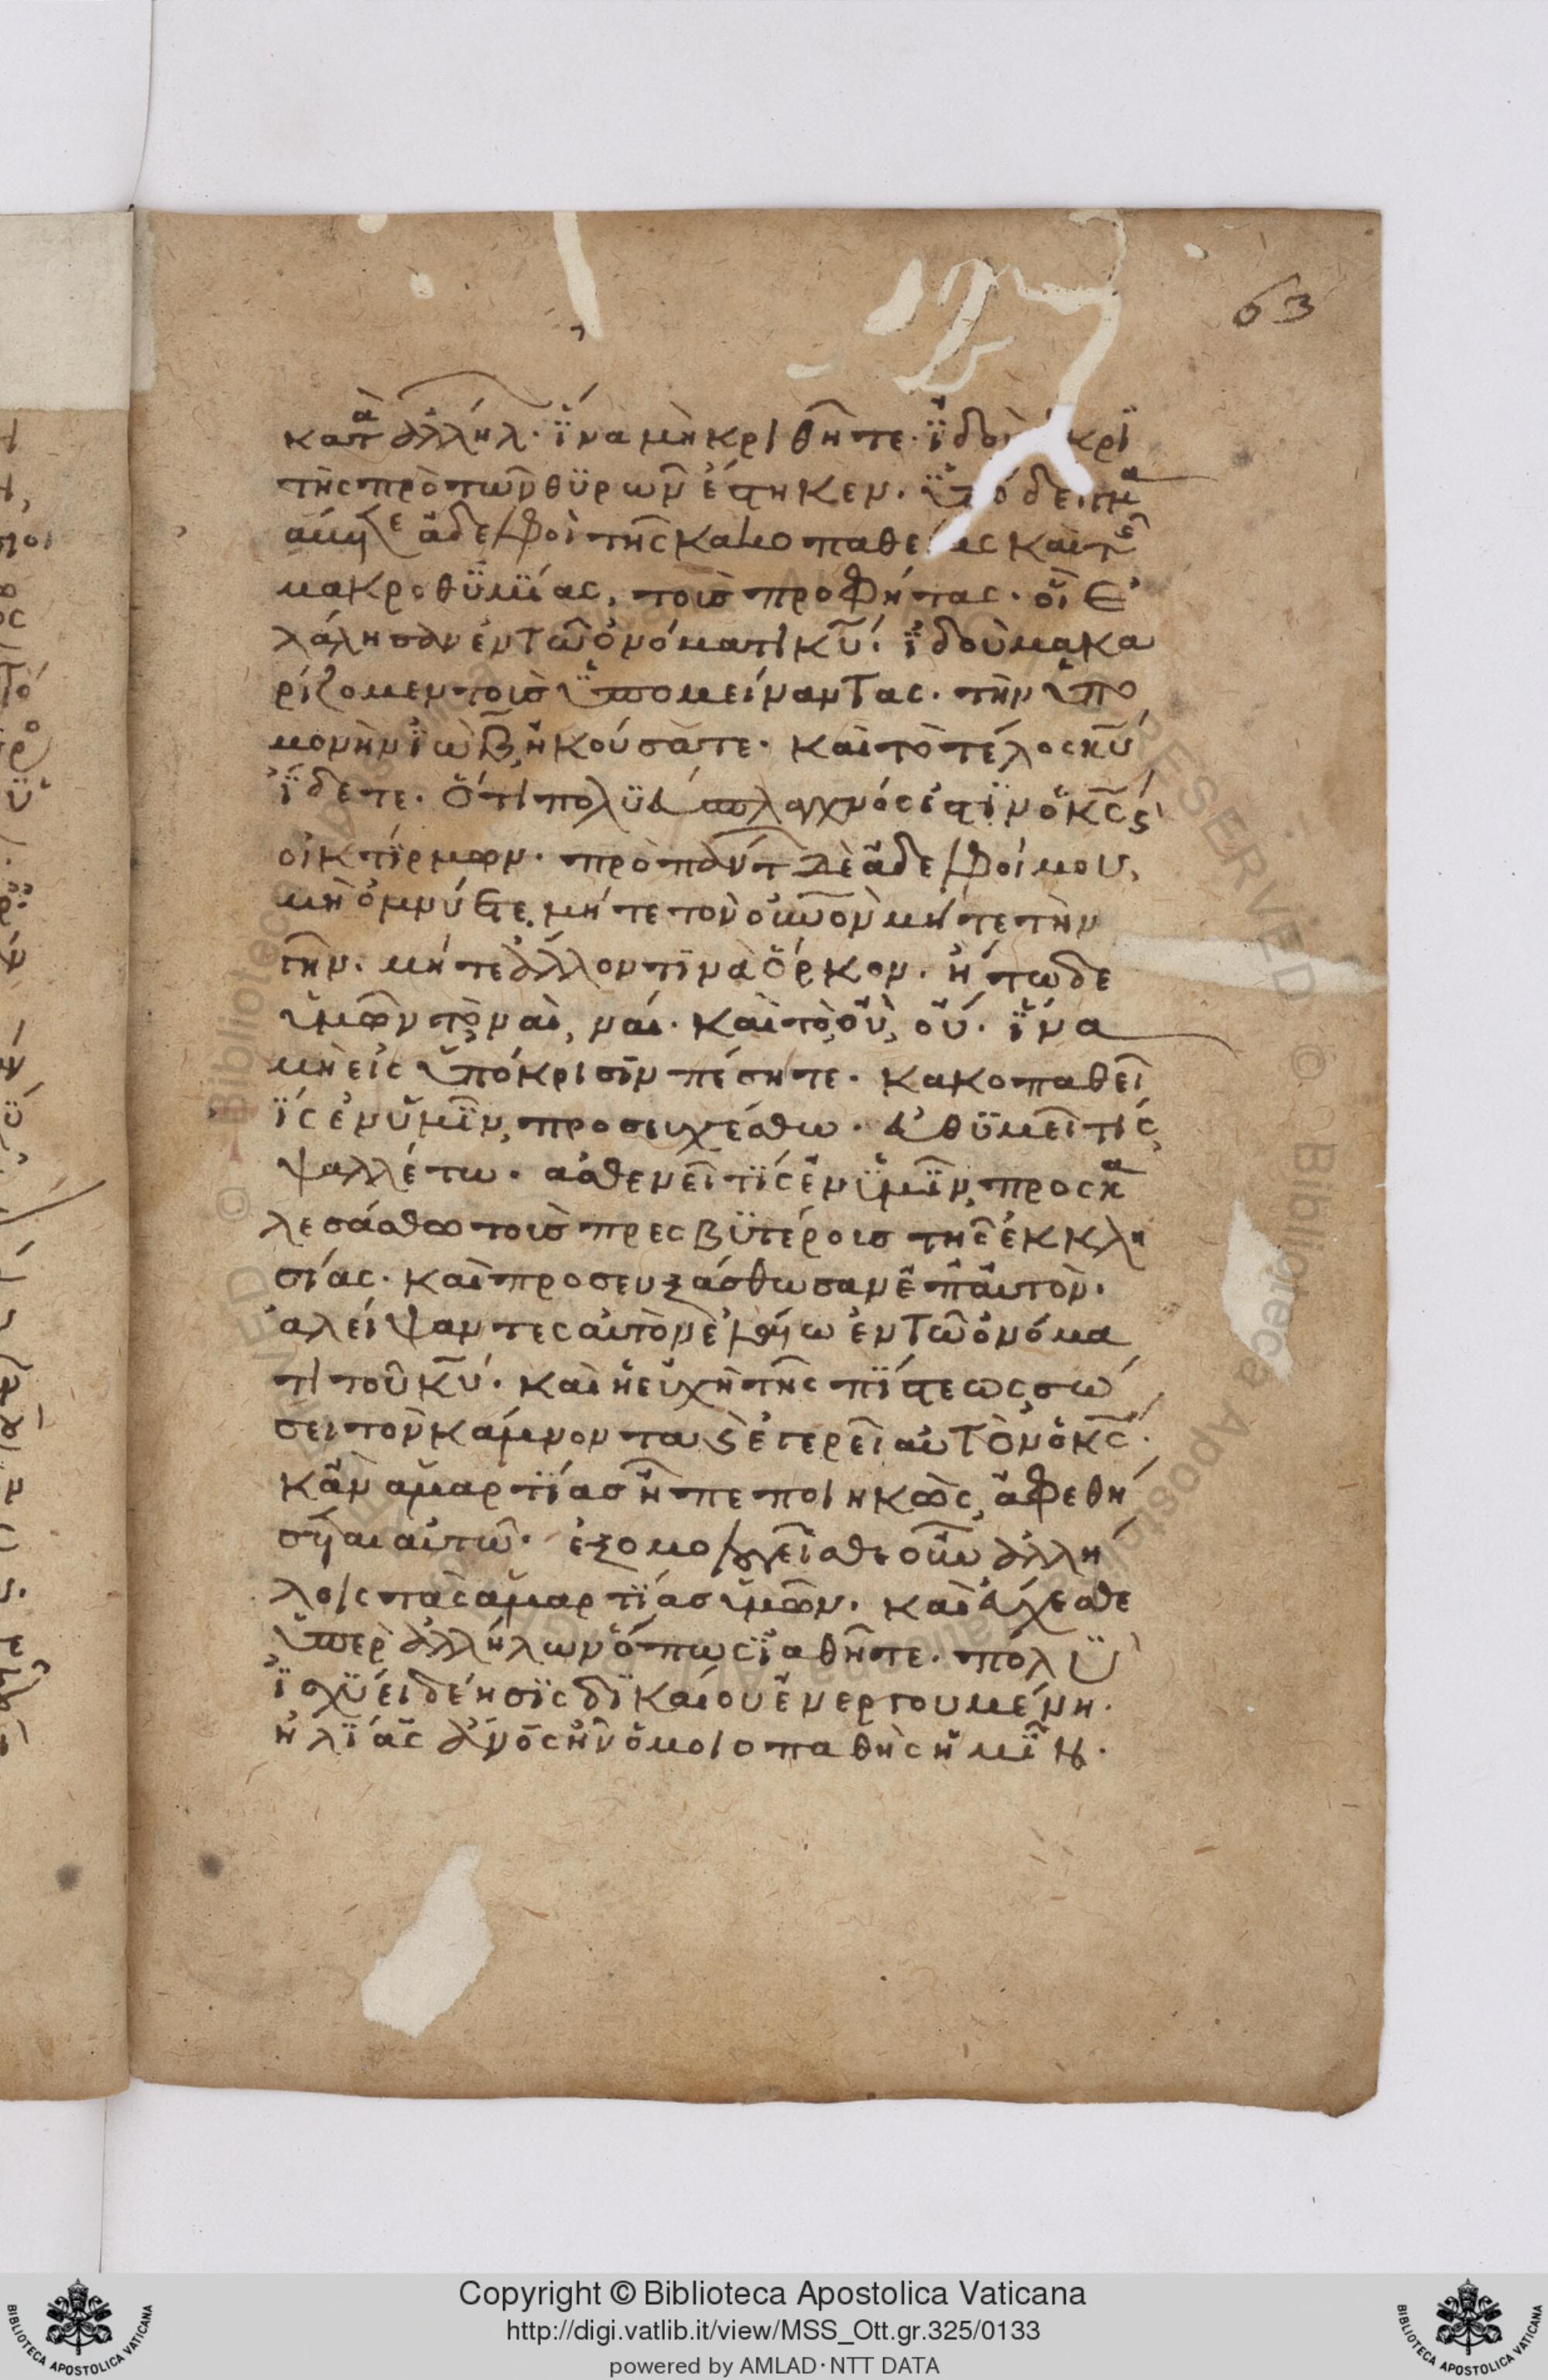 63
κατὰ ἀλλήλ. ἵνα μὴ κριθῆτε. ἰδοὺ κρι
τὴς πρὸ τῶν θυρῶν ἕστηκεν. ὑπόδειγμα
λάβετε ἀδελφοὶ τῆς κακοπαθείας καὶ τῆς
μακροθυμίας, τοὺς προφήτας. οἳ ἐ
λάλησαν ἐν τῶ ὀνόματι κυ. ἰδοὺ μακα
ρίζομεν τοὺς ὑπομείναντας. τὴν ὑπο
μονὴν ἰὼβ, ἠκούσατε. καὶ τὸ τέλος κυ
ἴδετε. ὅτι πολυεύσπλαγχνός ἐστιν ὁ κς ϛ
οἰκτίρμων. πρὸ πάντ δὲ ἀδελφοί μου,
μὴ ὀμνύετε, μήτε τὸν οὐνον μήτε τὴν
γῆν. μήτε ἄλλον τινὰ ὅρκον. ἤτω δὲ
ὑμῶν τὸ, ναὶ, ναί. καὶ τὸ, οὒ, οὔ. ἵνα
μὴ εἰς ὑπόκρισιν πέσητε. κακοπαθεῖ
τις ἐν ὑμῖν, προσευχέσθω. εὐθυμεῖ τίς,
ψαλλέτω. ἀσθενεῖ τίς ἐν ὑμῖν, προσκα
λεσάσθω τοὺς πρεσβυτέρους τῆς ἐκκλη
σίας. καὶ προσευξάσθωσαν ἐπ αὐτὸν.
ἀλείψαντες αὐτὸν ἐλαίω ἐν τῶ ὀνόμα
τι τοῦ κυ. καὶ ἡ εὐχὴ τῆς πίστεως, σώ
σει τὸν κάμνοντα ϛ ἐγερεῖ αὐτὸν ὁ κς.
κἂν ἁμαρτίας ἦ πεποιηκὼς, ἀφεθή
σεται αὐτῶ. ἐξομολογεῖσθε οὖν ἀλλή
λοις τὰς ἁμαρτίας ὑμῶν. καὶ εὔχεσθε
ὑπὲρ ἀλλήλων ὅπως ἰαθῆτε. πολὺ
ἰσχύει δέησις δικαίου ἐνεργουμένη.
ἠλίας ἀνος ἦν ὁμοιοπαθὴς ἡμῖν.
Copyright © Biblioteca Apostolica Vaticana
http://digi.vatlib.it/view/MSS_Ott.gr.325/0133
powered by AMLAD·NTT DATA